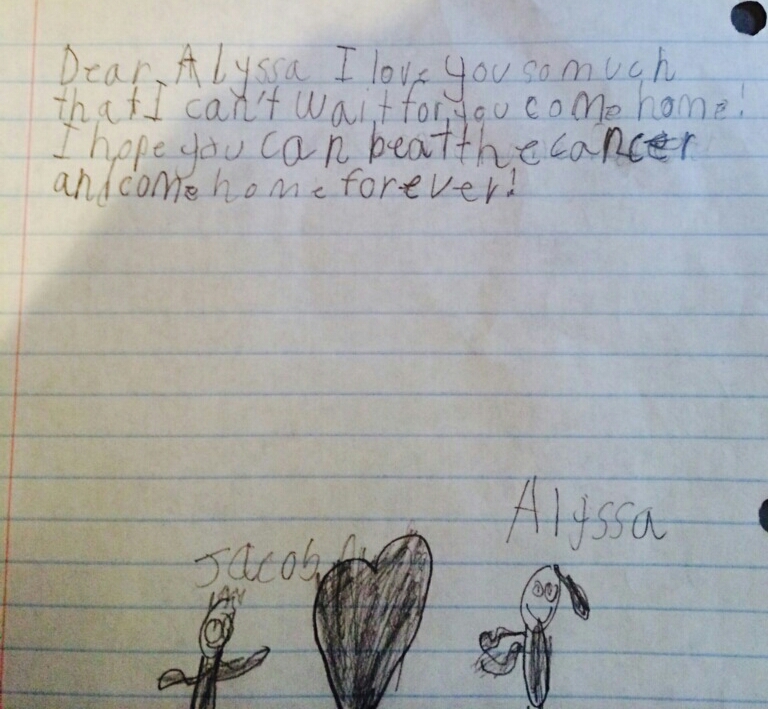 Dear Alyssa I love you so much
that I can't wait for you come home!
I hope you can beat the cancer
and come home forever!
Alyssa
Jacob